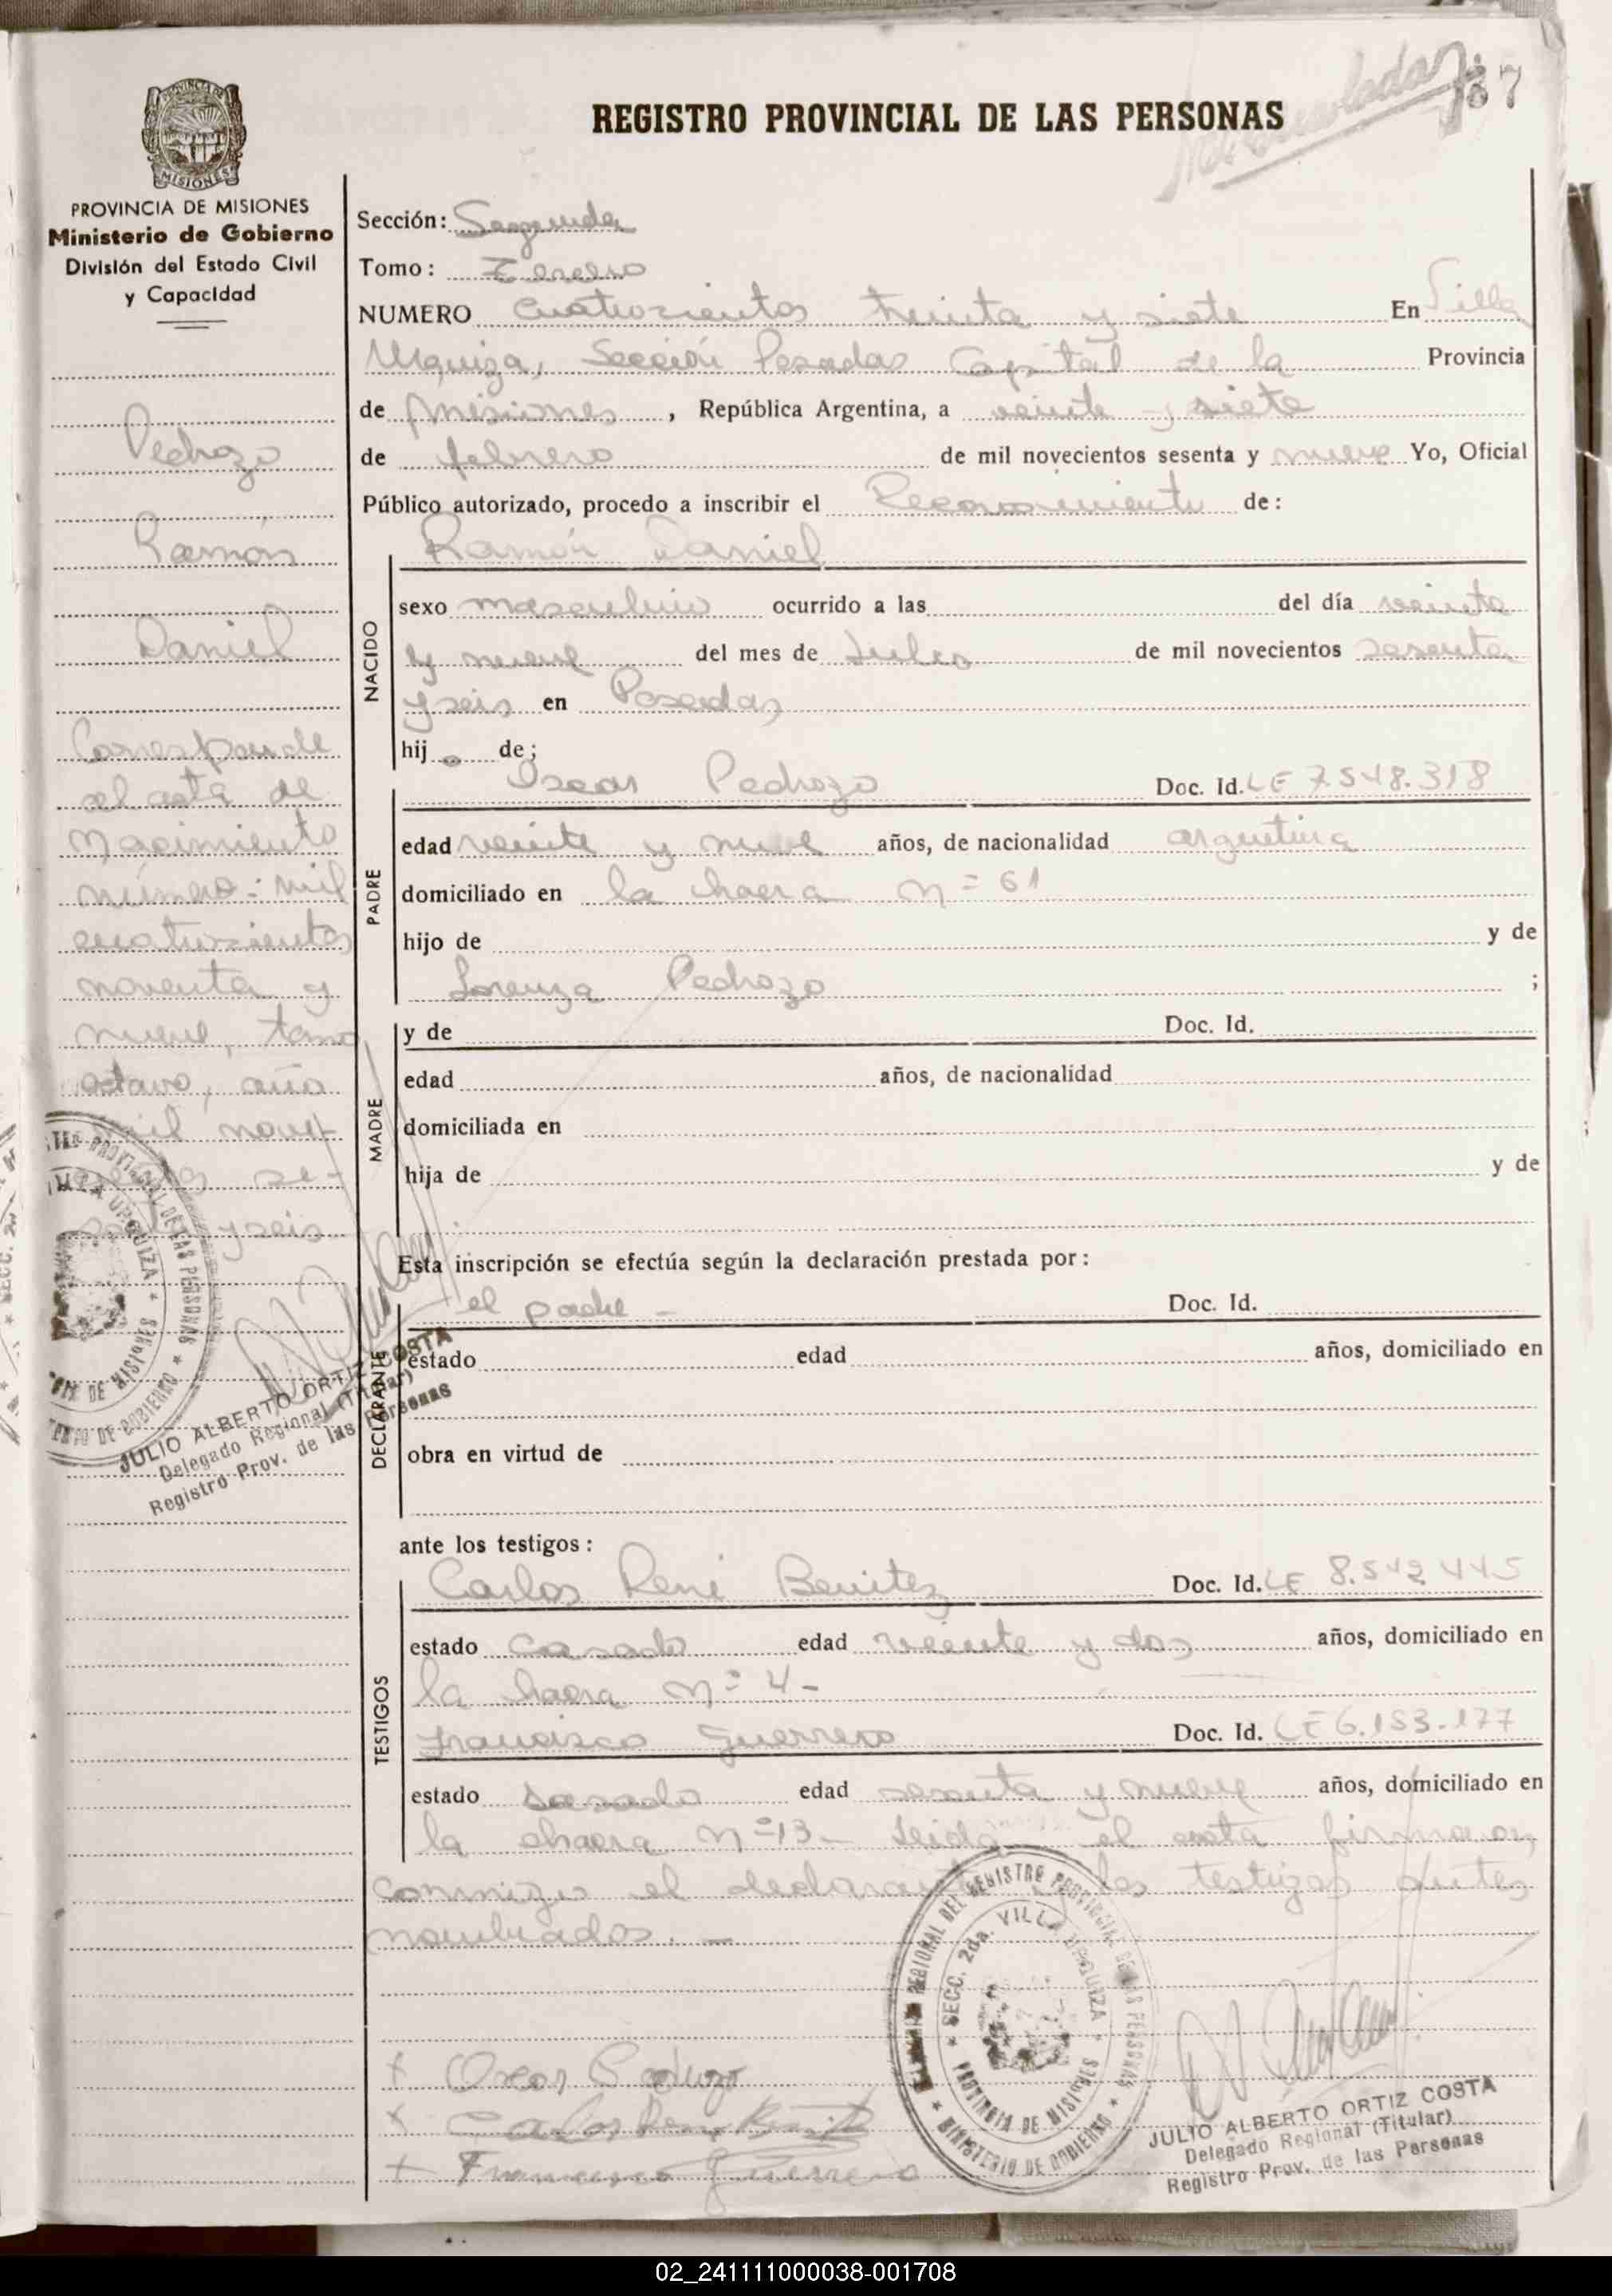 37
REGISTRO PROVINCIAL DE LAS PERSONAS
PROVINCIA DE MISIONES
Ministerio de Gobierno
División del Estado Civil
y Capacidad
Pedrozo
Ramón
Daniel
Corresponde
al acta de
Nacimiento
número: mil
cuatrocientos
noventa y
nueve, tomo
octavo, año
mil nove
se-
y seis.
JULIO ALBERTO ORTIZ COSTA
Delegado Regional (Titular)
Registro Prov. de las Personas
Sección: Segunda
Tomo: Tercero
NUMERO cuatrocientos treinta y siete En Villa
Urquiza, Sección Posadas Capital de la Provincia
de Misiones, República Argentina, a veinte y siete
de febrero de mil novecientos sesenta y nueve Yo, Oficial
Público autorizado, procedo a inscribir el Reconocimiento de:
Ramón Daniel
NACIDO
sexo masculino ocurrido a las del día veinte
y nueve del mes de Julio de mil novecientos sesenta
y seis en Posadas
hijo de;
PADRE
Oscar Pedrozo Doc. Id. LE 7.548.318
edad veinte y nueve años, de nacionalidad argentina
domiciliado en la chacra Nº 61
hijo de y de
Lorenza Pedrozo ;
MADRE
y de Doc. Id.
edad años, de nacionalidad
domiciliada en
hija de y de
Esta inscripción se efectúa según la declaración prestada por:
DECLARANTE
el padre - Doc. Id.
estado edad años, domiciliado en
obra en virtud de
ante los testigos:
TESTIGOS
Carlos René Benitez Doc. Id. LE 8.542.445
estado casado edad veinte y dos años, domiciliado en
la chacra Nº 4 -
Francisco Guerrero Doc. Id. LE 6.153.177
estado casado edad sesenta y nueve años, domiciliado en
la chacra Nº 13 - Leida el acta firman
conmigo el declarante los testigos antes
nombrados. -
REGIONAL DEL REGISTRO PROVINCIAL DE LAS PERSONAS
* SECC. 2da. VILLA URQUIZA *
PROVINCIA DE MISIONES
* MINISTERIO DE GOBIERNO *
+ Oscar Pedrozo
x Carlos Rene Benitez
+ Francisco Guerrero
JULIO ALBERTO ORTIZ COSTA
Delegado Regional (Titular)
Registro Prov. de las Personas
02_241111000038-001708